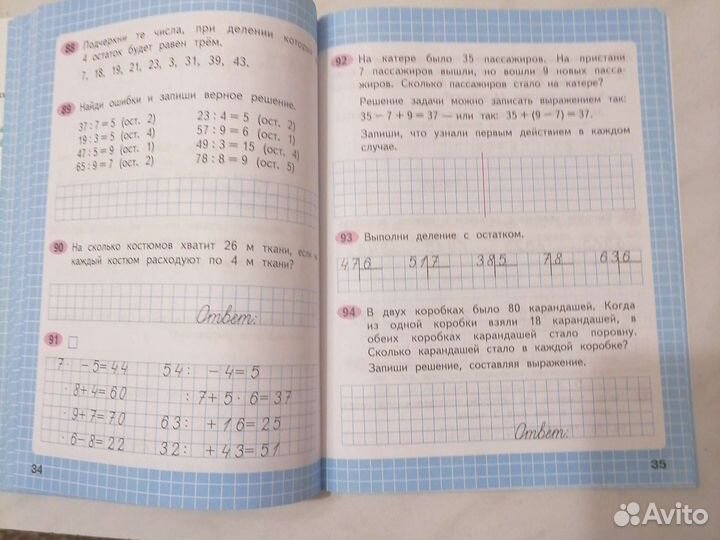 88 Подчеркни те числа, при делении которых
4 остаток будет равен трём.
7, 18, 19, 21, 23, 3, 31, 39, 43.
89 Найди ошибки и запиши верное решение.
37 : 7 = 5 (ост. 2) 23 : 4 = 5 (ост. 2)
19 : 3 = 5 (ост. 4) 57 : 9 = 6 (ост. 1)
47 : 5 = 9 (ост. 1) 49 : 3 = 15 (ост. 4)
65 : 9 = 7 (ост. 2) 78 : 8 = 9 (ост. 5)
90 На сколько костюмов хватит 26 м ткани, если
каждый костюм расходуют по 4 м ткани?
Ответ:
91
7· - 5=44 54: - 4=5
· 8+4=60 : 7+5· 6=37
· 9+7=70 63: +16=25
· 6-8=22 32: +43=51
34
92 На катере было 35 пассажиров. На пристани
7 пассажиров вышли, но вошли 9 новых пасса-
жиров. Сколько пассажиров стало на катере?
Решение задачи можно записать выражением так:
35 - 7 + 9 = 37 — или так: 35 + (9 - 7) = 37.
Запиши, что узнали первым действием в каждом
случае.
93 Выполни деление с остатком.
47 6 51 7 38 5 7 8 63 6
94 В двух коробках было 80 карандашей. Когда
из одной коробки взяли 18 карандашей, в
обеих коробках карандашей стало поровну.
Сколько карандашей стало в каждой коробке?
Запиши решение, составляя выражение.
Ответ:
35
Avito